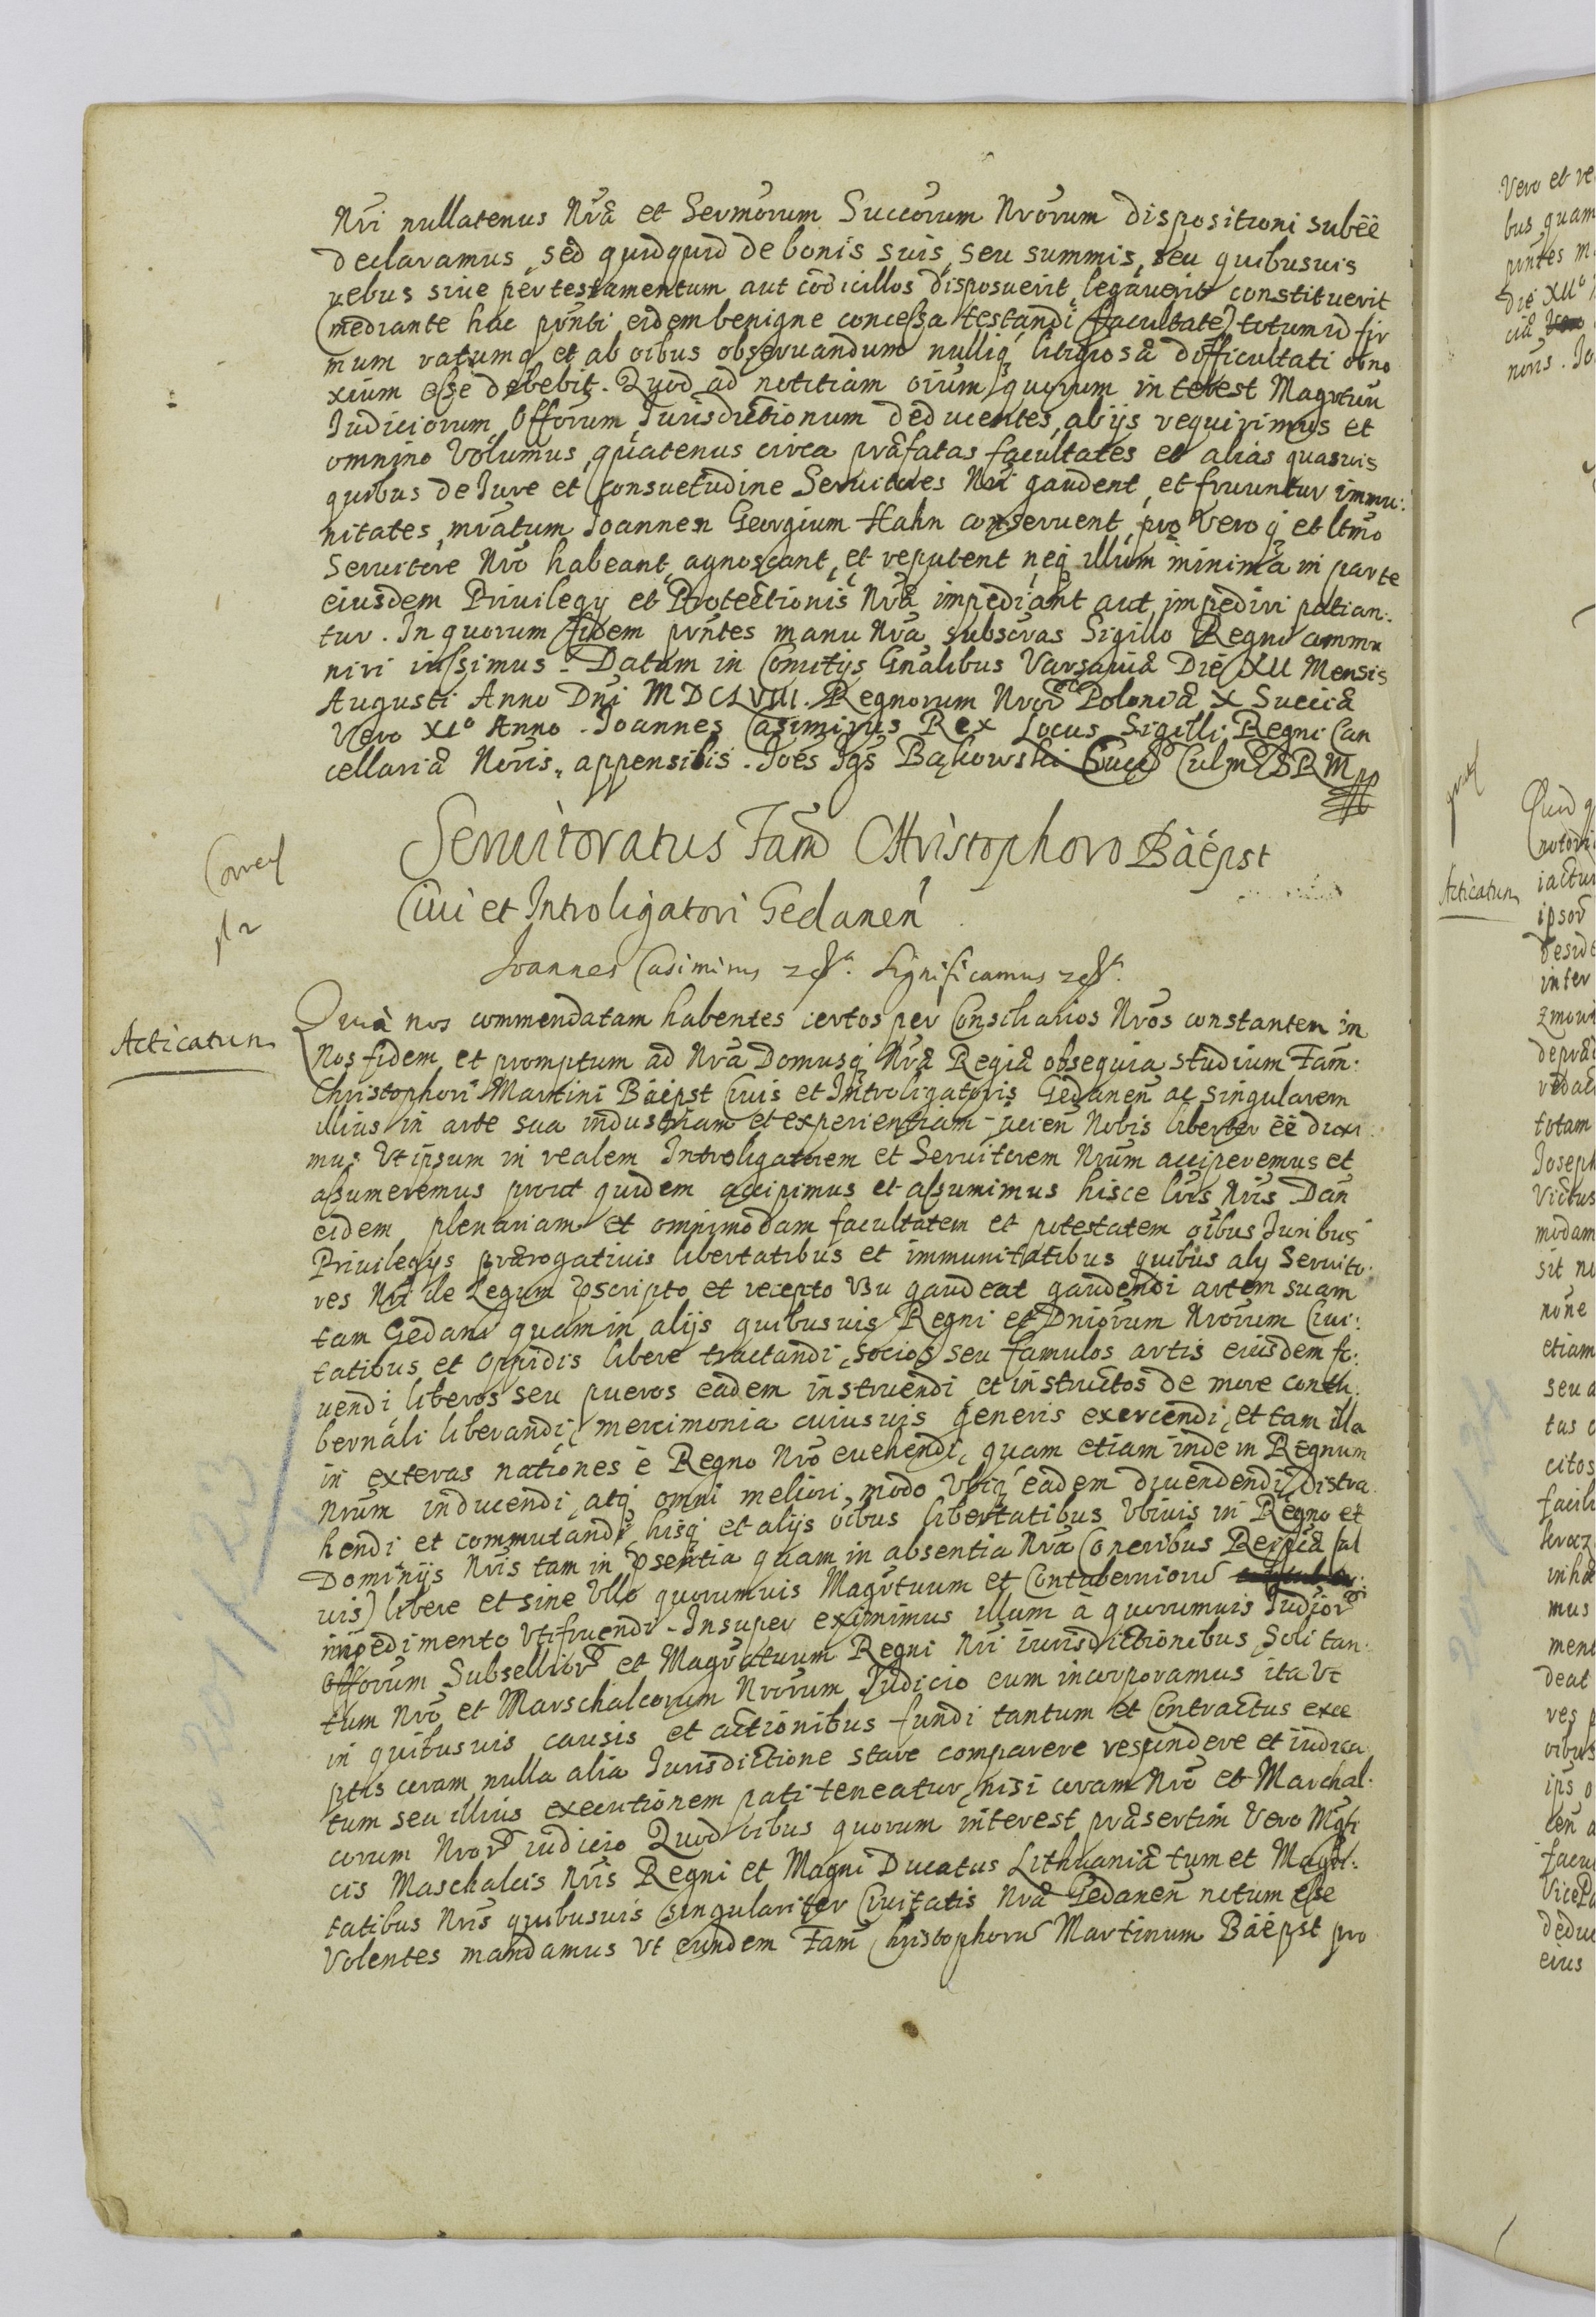 Nri nullatenus Nrã et Sermorum Succorum Nrorum dispositioni subëë
declaramus, sed quidquid de bonis suis, seu summis, seu quibusuis
rebus siue per testamentum aut codicillos disposuerit, legauerit constituerit
(mediante hac pr̃nti eidem benigne concessa testandi facultate) totum id fir
mum ratumq́ et ab oibus obseruandum nulliq́ litigiosæ difficultati obno
xium esse debebit. Quod ad notitiam oium quorum interest Magrtuu
Iudiciorum, Offorum, Iurisdictionum deducentes, ab ijs requirimus et
omnino Volumus, quatenus circa præfatas facultates et alias quasuis
quibus de Iure et Consuetudine Seruitores Nri gaudent, et fruuntur immu:
nitates, mratum Joannem Georgium Hahn conseruent, pro Vero q́ et ltmo
Seruitore Nro habeant, agnoscant, et reputent neq́ illum minima in parte
eiusdem Priuilegij et Protectionis Nræ impediant aut impediri patian:
tur. In quorum fidem pr̃ntes manu Nra subscras Sigillo Regni commu
niri iussimus. Datum in Comitijs Gnalibus Varsauiæ Die XII Mensis
Augusti Anno Dni MDCLVIII. Regnorum Nror Poloniæ X Sueciæ
Vero XI° Anno. Joannes Casimirus Rex Locus Sigilli Regni Can
cellariæ Noris, appensibilis. Joẽs Igs Bąkowski Succ Culm SRM pp
Seruitoratus Fam Christophoro Bäëpst
Ciui et Introligatori Gedanen
Joannes Casimirus Significamus
Acticatum
Quia nos commendatam habentes certos per Consiliarios Nros constantem in
Nos fidem et promptum ad Nra Domusq́ Nræ Regiæ obsequia studium Fam:
Christophori Martini Bäëpst Ciuis et Introligatoris Gedanen ac singularem
illius in arte sua industriam et experientiam Nobis liberter ëë duxi
mus Ut ipsum in realem Introligatorem et Seruitorem Nrum acciperemus et
assumeremus prout quidem accipimus et assumimus hisce lris Nris Dan
eidem plenariam et omnimodam facultatem et potestatem oibus Iuribus
Priuilegijs prærogatiuis libertatibus et immunitatibus quibus alij Seruito:
res Nri de Legum pscripto et recepto Usu gaudeat gaudendi artem suam
tam Gedani quam in alijs quibusuis Regni et Dniorum Nrorum Ciui:
tatibus et Oppidis libere tractandi, socios seu famulos artis eiusdem fo:
uendi liberos seu pueros eadem instruendi et instructos de more contu:
bernali liberandi, mercimonia cuiusuis generis exercendi, et tam illa
in exteras nationes è Regno Nro euehendi, quam etiam inde in Regnum
Nrum inducendi, atq́ omni meliori modo Ubiq́ eadem diuendendi, distra
hendi et commutandi, hisq́ et alijs oibus libertatibus Ubiuis in Regno et
Dominijs Nris tam in psentia quam in absentia Nra (oneribus Reipcæ sal
uis) libere et sine Ullo quorumuis Magrtuum et Contuberniorũ
impedimento Utifruendi. Insuper eximimus illum à quorumuis Iudior
Offorum Subsellior et Magratuum Regni Nri iurisdictionibus, Soli tan
tum Nro et Marschalcorum Nrorum Iudicio eum incorporamus ita Ut
in quibusuis causis et actionibus fundi tantum et Contractus exce
ptis coram nulla alia Iurisdictione stare comparere respondere et iudica
tum seu illius executionem pati teneatur, nisi coram Nro et Marchal:
corum Nror iudicio Quod oibus quorum interest præsertim Vero Mgfi
cis Maschalcis Nris Regni et Magni Ducatus Lithuaniæ tum et Magis:
tatibus Nris quibusuis singulariter Ciuitatis Nræ Gedanen notum esse
Volentes mandamus Ut eundem Fam Christophorũ Martinum Bäëpst pro
Vero et re
bus quam
prntes m
Die XII°
ciæ
noris. Jo
Acticatum
Quod q
notori
iactur
ipsor
desid
inter
totam
Joseph
Victus
modam
sit n
none
etiam
seu a
tas
citos
facili
in ho
mus
ment
deat
res p
oibus
ips
cen a
facu
Vice
deduc
eius